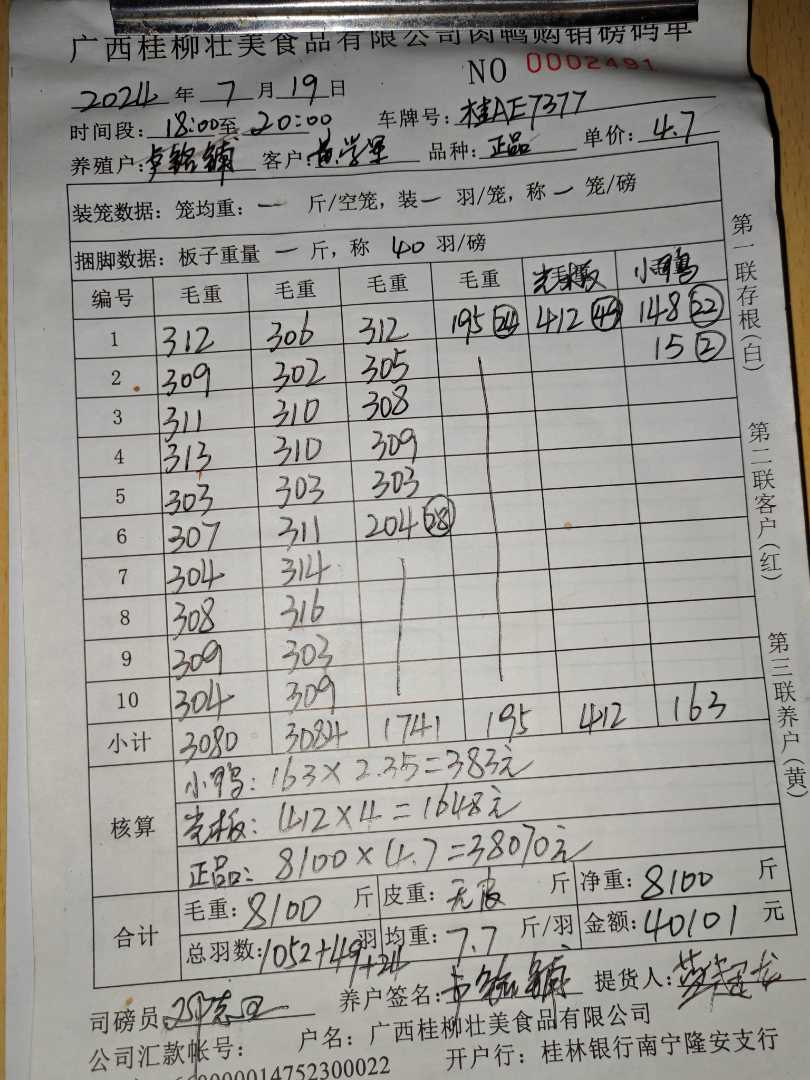 广西桂柳壮美食品有限公司肉鸭购销磅码单
NO 0002491
2024 年 7 月 19 日
时间段: 18:00至 20:00 车牌号: 桂AE7377
养殖户: 卢铭铺 客户: 黄学军 品种: 正品 单价: 4.7
装笼数据: 笼均重: 一 斤/空笼, 装一 羽/笼, 称一 笼/磅
捆脚数据: 板子重量 一 斤, 称 40 羽/磅
编号 毛重 毛重 毛重 毛重 光毛板 小鸭
1 312 306 312 195 24 412 49 148 22
2 309 302 305 15 2
3 311 310 308
4 313 310 309
5 303 303 303
6 307 311 204 28
7 304 314
8 308 316
9 309 303
10 304 309
小计 3080 3084 1741 195 412 163
核算 小鸭: 163×2.35=383元
光板: 412×4=1648元
正品: 8100×4.7=38070元
合计 毛重: 8100 斤 皮重: 无 斤 净重: 8100 斤
总羽数: 1052+49+24 羽 均重: 7.7 斤/羽 金额: 40101 元
司磅员 养户签名: 卢铭铺 提货人:
公司汇款帐号: 户名: 广西桂柳壮美食品有限公司
660000014752300022 开户行: 桂林银行南宁隆安支行
第一联存根(白) 第二联客户(红) 第三联养户(黄)